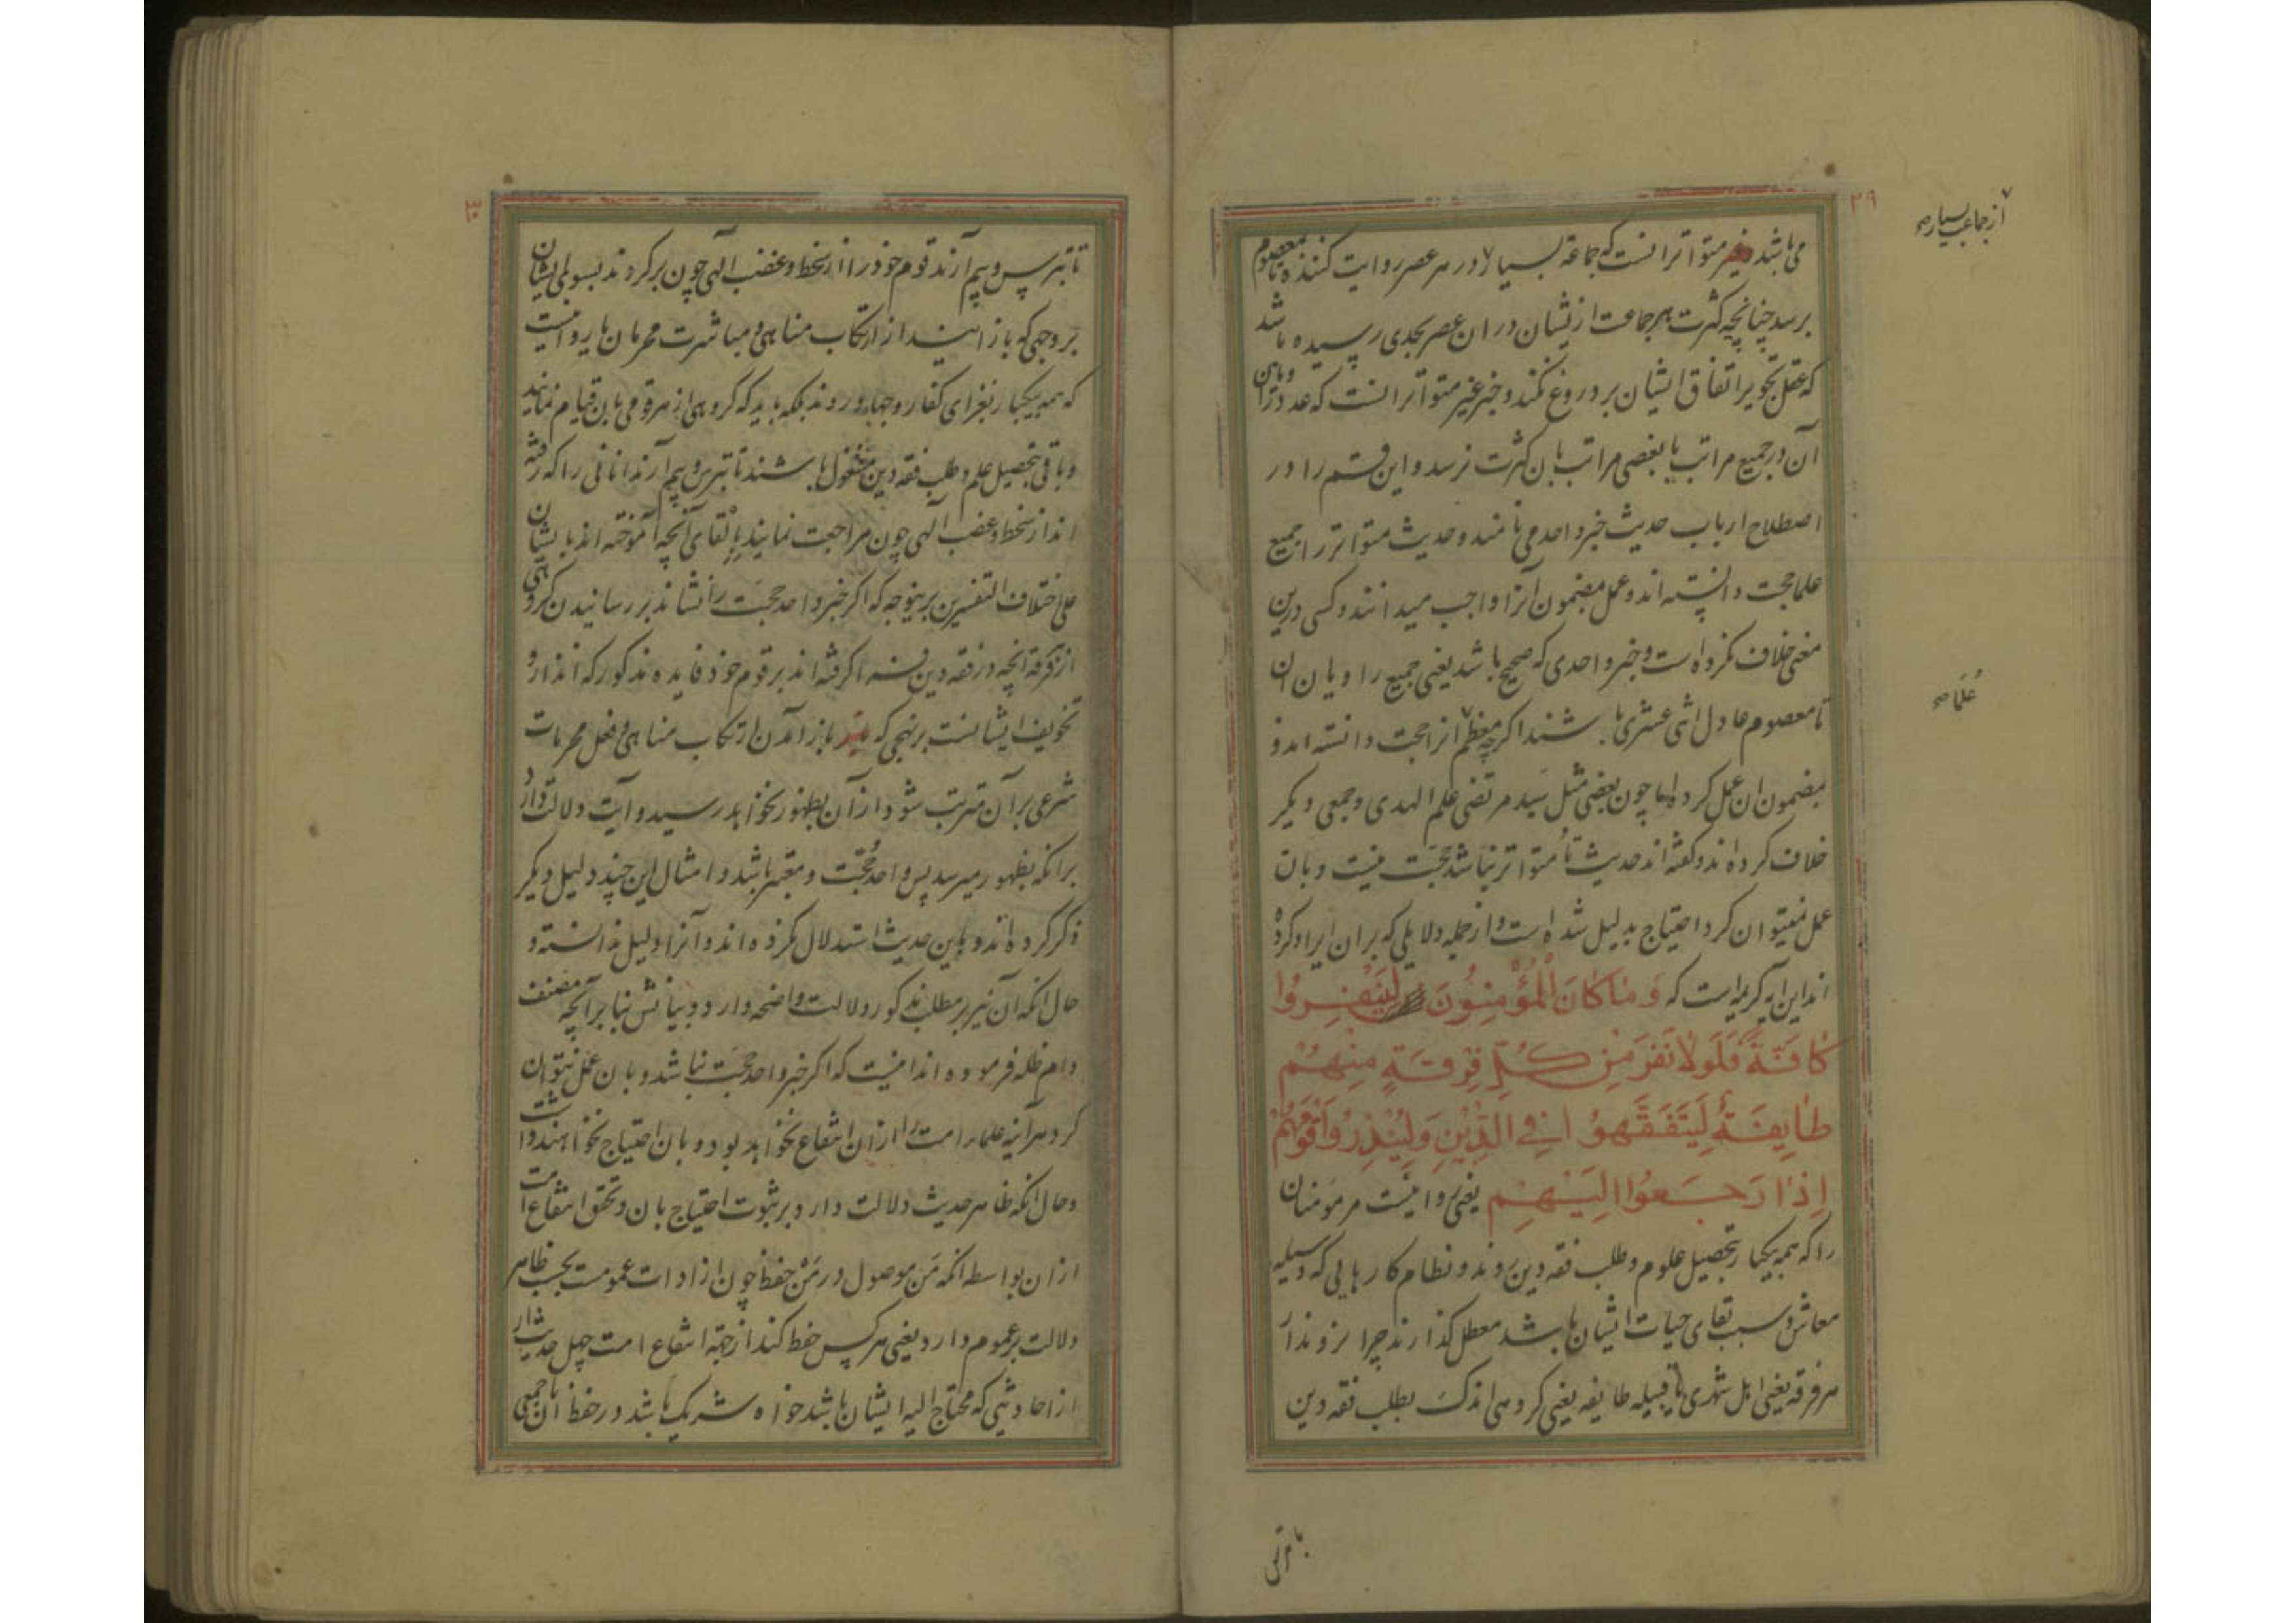 ۲۹
از جماعت بسیار صح
می باشد خبر متواتر انست که جماعة بسیار در هر عصر روایت کنند تا بمعصوم
برسد چنانچه کثرت هر جماعت ازیشان در ان عصر بحدی رسیده باشد
که عقل تجویز اتفاق ایشان بر دروغ نکند و خبر غیر متواتر انست که عدد راویان
آن در جمیع مراتب یا بعضی مراتب بان کثرت نرسد و این قسم را در
اصطلاح ارباب حدیث خبر واحد می نامند و حدیث متواتر را جمیع
علما حجت دانسته اند و عمل بمضمون آنرا واجب میدانند و کسی درین
معنی خلاف نکرده است و خبر واحدی که صحیح باشد یعنی جمیع راویان ان
علما صح
تا معصوم عادل اثنی عشری باشند اکرچه معظم انرا حجت دانسته اند و
بمضمون ان عمل کرده اما چون بعضی مثل سید مرتضی علم الهدی و جمعی دیکر
خلاف کرده اند و کفته اند حدیث تا متواتر نباشد حجت نیست و بان
عمل نمیتوان کرد احتیاج بدلیل شده است و از جمله دلایلی که بران ایراد کرده
اند این ایه کریمه است که وَمَا كَانَ الْمُؤْمِنُونَ لِيَنْفِرُوا
كَافَّةً فَلَوْلَا نَفَرَ مِنْ كُلِّ فِرْقَةٍ مِنْهُمْ
طَايِفَةٌ لِيَتَفَقَّهُوا فِي الدِّينِ وَلِيُنْذِرُوا قَوْمَهُمْ
اِذَا رَجَعُوا اِلَيْهِمْ یعنی روا نیست مر مؤمنان
را که همه بیکبار بتحصیل علوم و طلب فقه دین روند و نظام کارهایی که وسیله
معاش و سبب بقای حیات ایشان باشد معطل کذارند چرا نروند از
هر فرقه یعنی اهل شهری یا قبیله طایفه یعنی کروهی اندک بطلب فقه دین
۳۰
تا بترس و بیم آرند قوم خود را از سخط و غضب الهی چون برکردند بسوی ایشان
بر وجهی که باز ایستند از ارتکاب مناهی و مباشرت محرمات یا روا نیست
که همه بیکبار بغزای کفار و جهاد روند بلکه باید که کروهی از هر قومی بان قیام نمایند
و باقی بتحصیل علم و طلب فقه دین مشغول باشند تا بترس و بیم آرند انانی را که رفته
اند از سخط و غضب الهی چون مراجعت نمایند بالقای آنچه آموخته اند بایشان
علی اختلاف التفسیرین برینوجه که اکر خبر واحد حجت نباشد بر رسانیدن کروهی
از فرقه آنچه در فقه دین فرا کرفته اند بر قوم خود فایده مذکور که انذار و
تخویف ایشانست بر نهجی که باز آمدن از ارتکاب مناهی و فعل محرمات
شرعی بر آن مترتب شود از آن بظهور نخواهد رسید و آیت دلالت دارد
برانکه بظهور میرسد پس واحد حجت و معتبر باشد و امثال این چند دلیل دیکر
ذکر کرده اند و باین حدیث استدلال نکرده اند و آنرا دلیل ندانسته و
حال انکه آن نیز بر مطلب مذکور دلالت واضحه دارد و بیانش بنا بر آنچه مصنف
دام ظله فرموده اند اینست که اکر خبر واحد حجت نباشد و بان عمل نتوان
کرد هر آینه علماء امت را از ان انتفاع نخواهد بود و بان احتیاج نخواهند داشت
و حال انکه ظاهر حدیث دلالت دارد بر ثبوت احتیاج بان و تحقق انتفاع امت
از ان بواسطه انکه مَن موصول در مَنْ حفظ چون از ادات عمومست بحسب ظاهر
دلالت بر عموم دارد یعنی هر کس حفظ کند از جهة انتفاع امت چهل حدیث را
از احادیثی که محتاج الیه ایشان باشد خواه شریک باشد در حفظ آن با جمعی